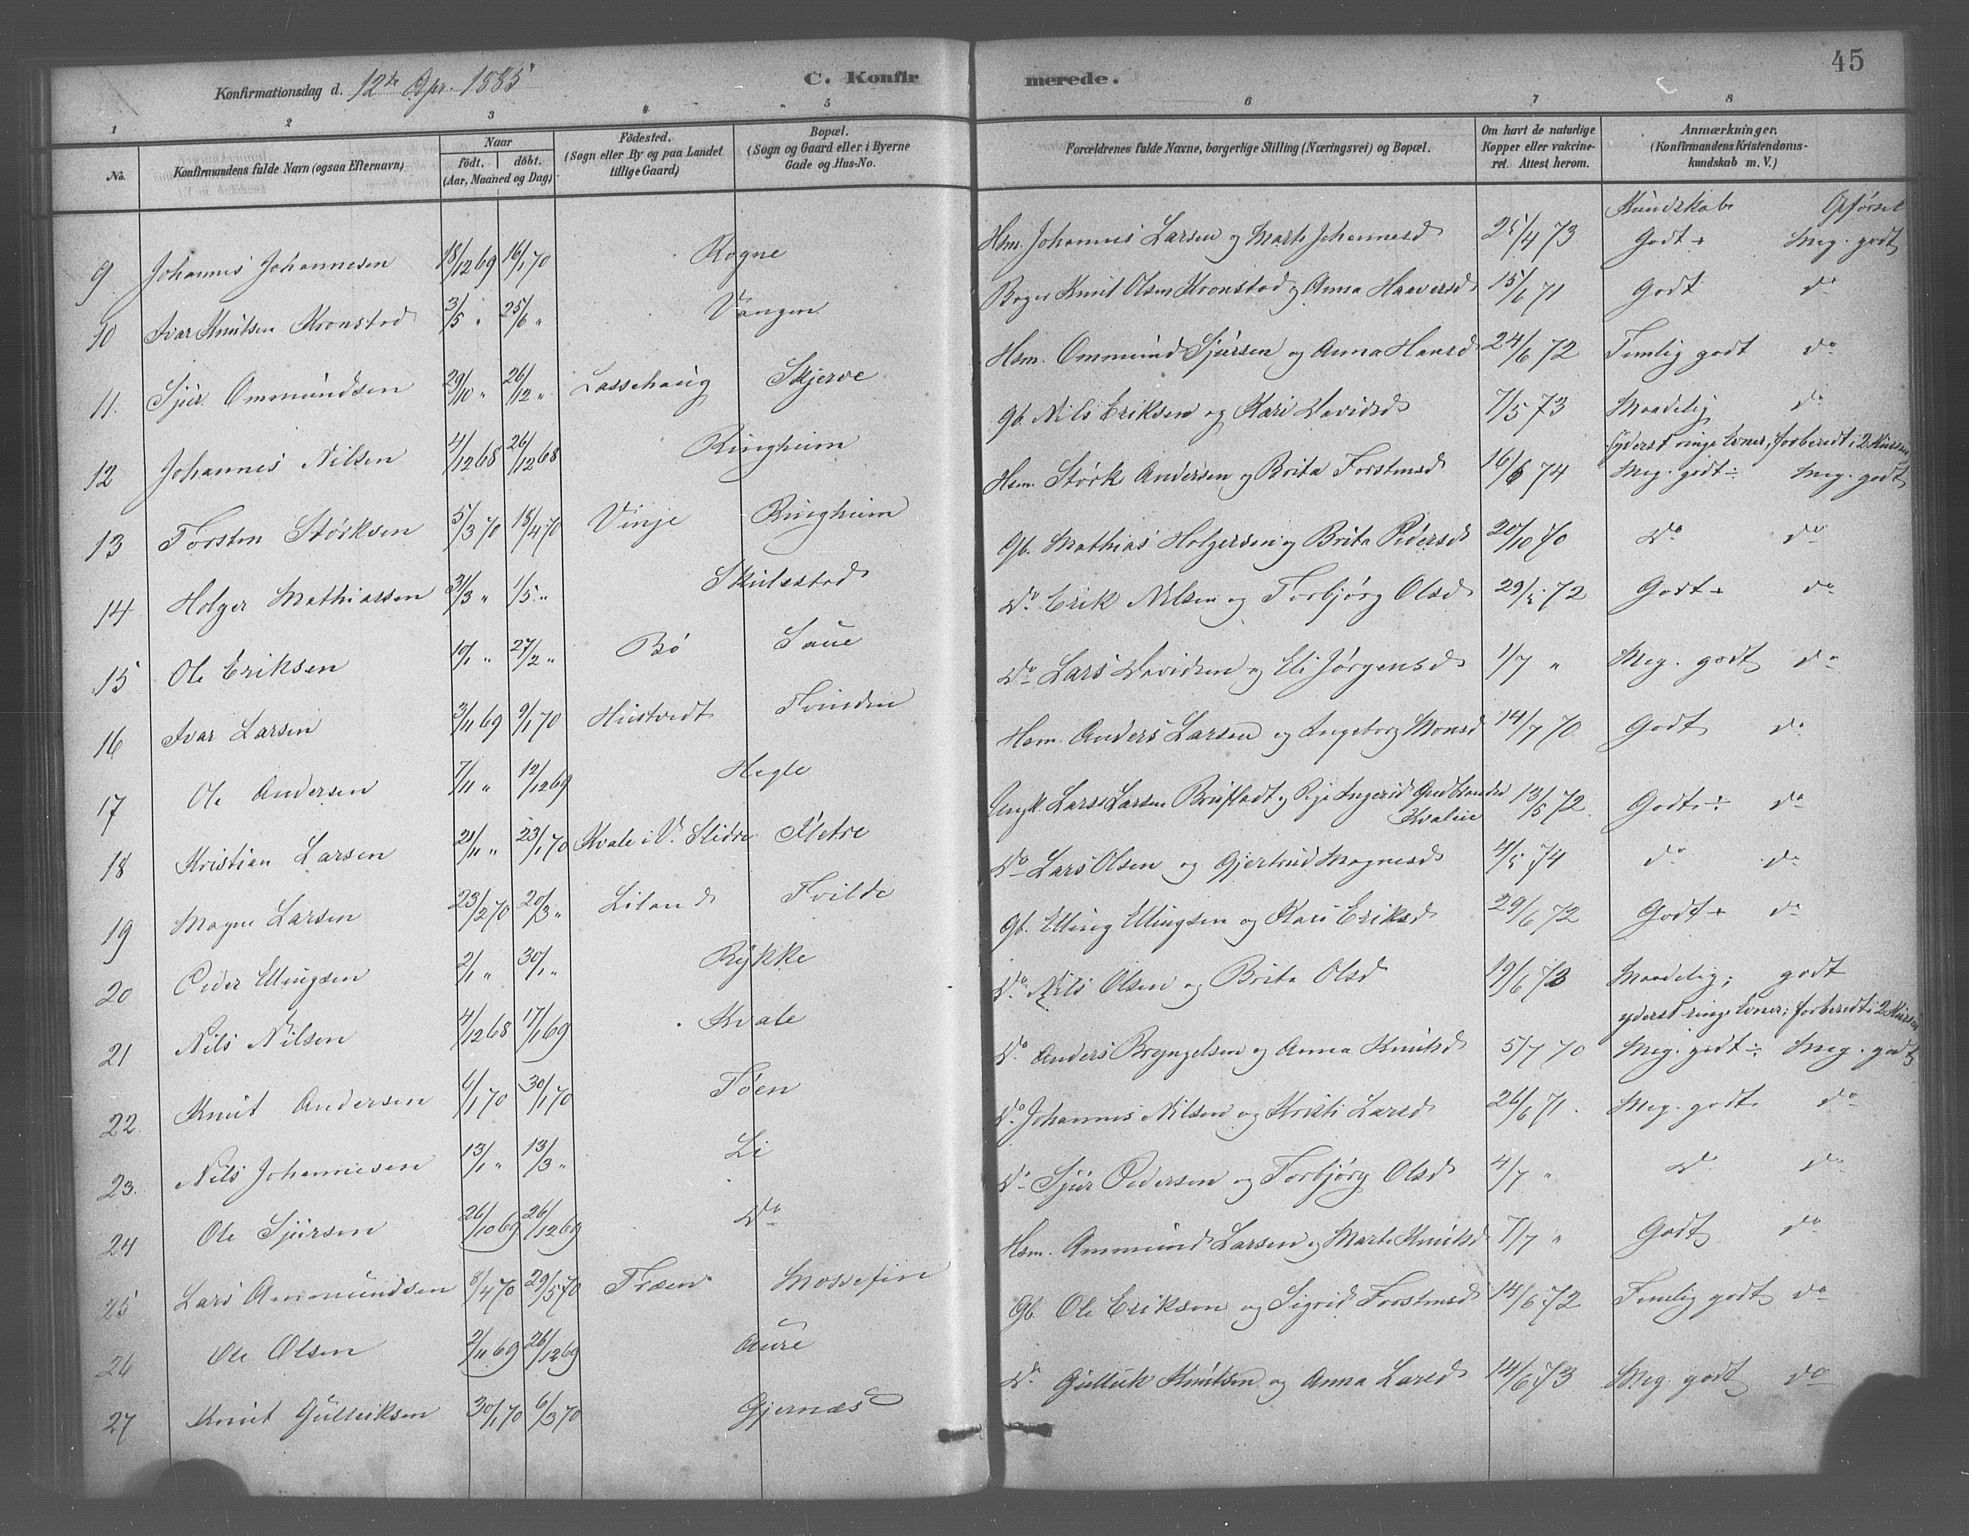 45
Konfirmationsdag d. 12te Apr. 1885
C. Konfirmerede.
1 2 3 4 5 6 7 8
No.
Konfirmandens fulde Navn (ogsaa Efternavn)
Naar
födt. döbt.
(Aar, Maaned og Dag)
Födested.
(Sogn eller By og paa Landet
tillige Gaard)
Bopæl.
(Sogn og Gaard eller i Byerne
Gade og Hus-No.
Forældrenes fulde Navne, borgerlige Stilling (Næringsvei) og Bopæl.
Om havt de naturlige
Kopper eller vakcine-
ret. Attest herom.
Anmærkninger.
(Konfirmandens Kristendoms-
kundskab m. V.)
Kundskab Opførsel
9 Johannes Johannesen 18/12 69 16/1 70 Rogne Hsm. Johannes Larsen og Marte Johannesd 25/4 73 Godt + Meg. godt
10 Ivar Knutsen Kronstad 3/5 " 25/6 " Vangen Knut Olsen Kronstad og Anna Haaversd 15/6 71 Godt do
11. Sjur Ommundsen 29/10 " 26/12 " Lassehaug Skjerve Hsm. Ommund Sjursen og Anna Hansd 24/6 72 Temlig godt do
12 Johannes Nilsen 4/12 68 26/12 68 Ringheim Gb. Nils Eriksen og Kari Davidsd 7/5 73 Maadelig do
yderst ringe Evner; forberedt i 2 Kurser
13 Torsten Størksen 5/3 70 18/4 70 Vinje Ringheim Hsm. Størk Andersen og Brita Torstensd 16/6 74 Meg. godt ÷ Meg. godt
14 Holger Mathiassen 31/3 " 1/5 " Skulestad Gb. Mathias Holgersen og Brita Pedersd 20/10 70 Do do
15 Ole Eriksen 10/1 " 27/2 " Bø Saue Do Erik Nilsen og Torbjørg Olsd 29/5 72 Godt + do
16 Ivar Larsen 3/11 69 9/1 70 Hustvedt Tvinden Do Lars Davidsen og Eli Jørgensd 1/7 " Meg. godt do
17 Ole Andersen 7/11 " 12/12 69 Hegle Hsm. Anders Larsen og Ingeborg Monsd 14/7 70 Godt do
18 Kristian Larsen 21/11 " 23/1 70 Kvale i V. Slidre Ungk. Lars Larsen og Pige Ingerid Gudbrandsd
Kvalen 13/5 72. Godt ÷ do
19 Magne Larsen 23/2 70 20/3 " Liland Tvilde Do Lars Olsen og Gjertrud Magnesd 4/5 74 do do
20 Peder Ellingsen 2/1 " 30/1 " Rykke Gb. Elling Ellingsen og Kari Eriksd 29/6 72 Godt + do
21 Nils Nilsen 4/12 68 17/1 69 Kvale Do Nils Olsen og Brita Olsd 19/6 73 Maadelig; godt
yderst ringe Evner; forberedt i 2 Kurser
22. Knut Andersen 6/1 70 30/1 70 Tøen Do Anders Bryngelsen og Anna Knutsd 5/7 70 Meg. godt ÷ Meg. godt
23. Nils Johannesen 13/1 " 13/3 " Li Do Johannes Nilsen og Kristi Larsd 26/6 71. Meg. godt do
24 Ole Sjursen 26/10 69 26/12 69 Do Do Sjur Pedersen og Torbjørg Olsd 4/7 " Do do
25 Lars Ammundsen 8/4 70 29/5 70 Træen Mossefin Hsm. Ammund Larsen og Marte Knutsd 7/7 " Godt do
26 Ole Olsen 2/11 69 26/12 69 Aure Gb. Ole Eriksen og Sigrid Torstensd 14/6 72 Temlig godt do
27 Knut Gulleiksen 30/1 70 6/3 70 Gjernæs Do Gulleik Knutsen og Anna Larsd 14/6 73 Meg. godt do